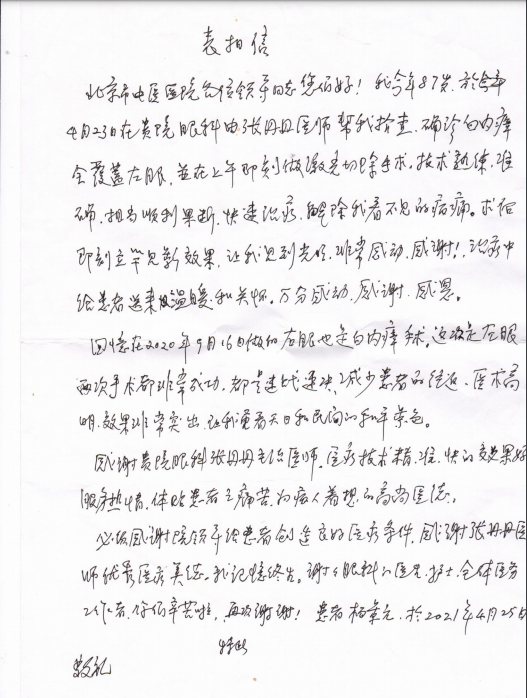 表扬信
北京市中医医院各位领导同志您们好！我今年87岁，於今年
4月23日在贵院眼科由张丹丹医师帮我检查，确诊白内瘴
全覆盖左眼，並在上午即刻做激光切除手术，技术熟练，准
确，相当顺利果断，快速治疗，解除我看不见的病痛。术后
即刻立竿见影效果，让我见到光明，非常感动，感谢！，治疗中
给患者送来温暖和关怀。万分感动，感谢，感恩。
回憶在2020年9月16日做的右眼也是白内瘴手术，这次是左眼
两次手术都非常成功，都是速战速决，减少患者的往返，医术高
明，效果非常突出，让我重看天日和民间的和平景色。
感谢贵院眼科张丹丹主治医师，医疗技术精、准、快的效果好
服务热情，体贴患者之痛苦，为病人着想的高尚医德，
必做感谢院领导给患者创造良好医疗条件，感谢张丹丹医
师优秀医疗美德，我记憶终生。谢谢眼科的医生，护士，全体医务
工作者，你们辛苦啦，再次谢谢！患者 於2021年4月25日
特此
敬礼